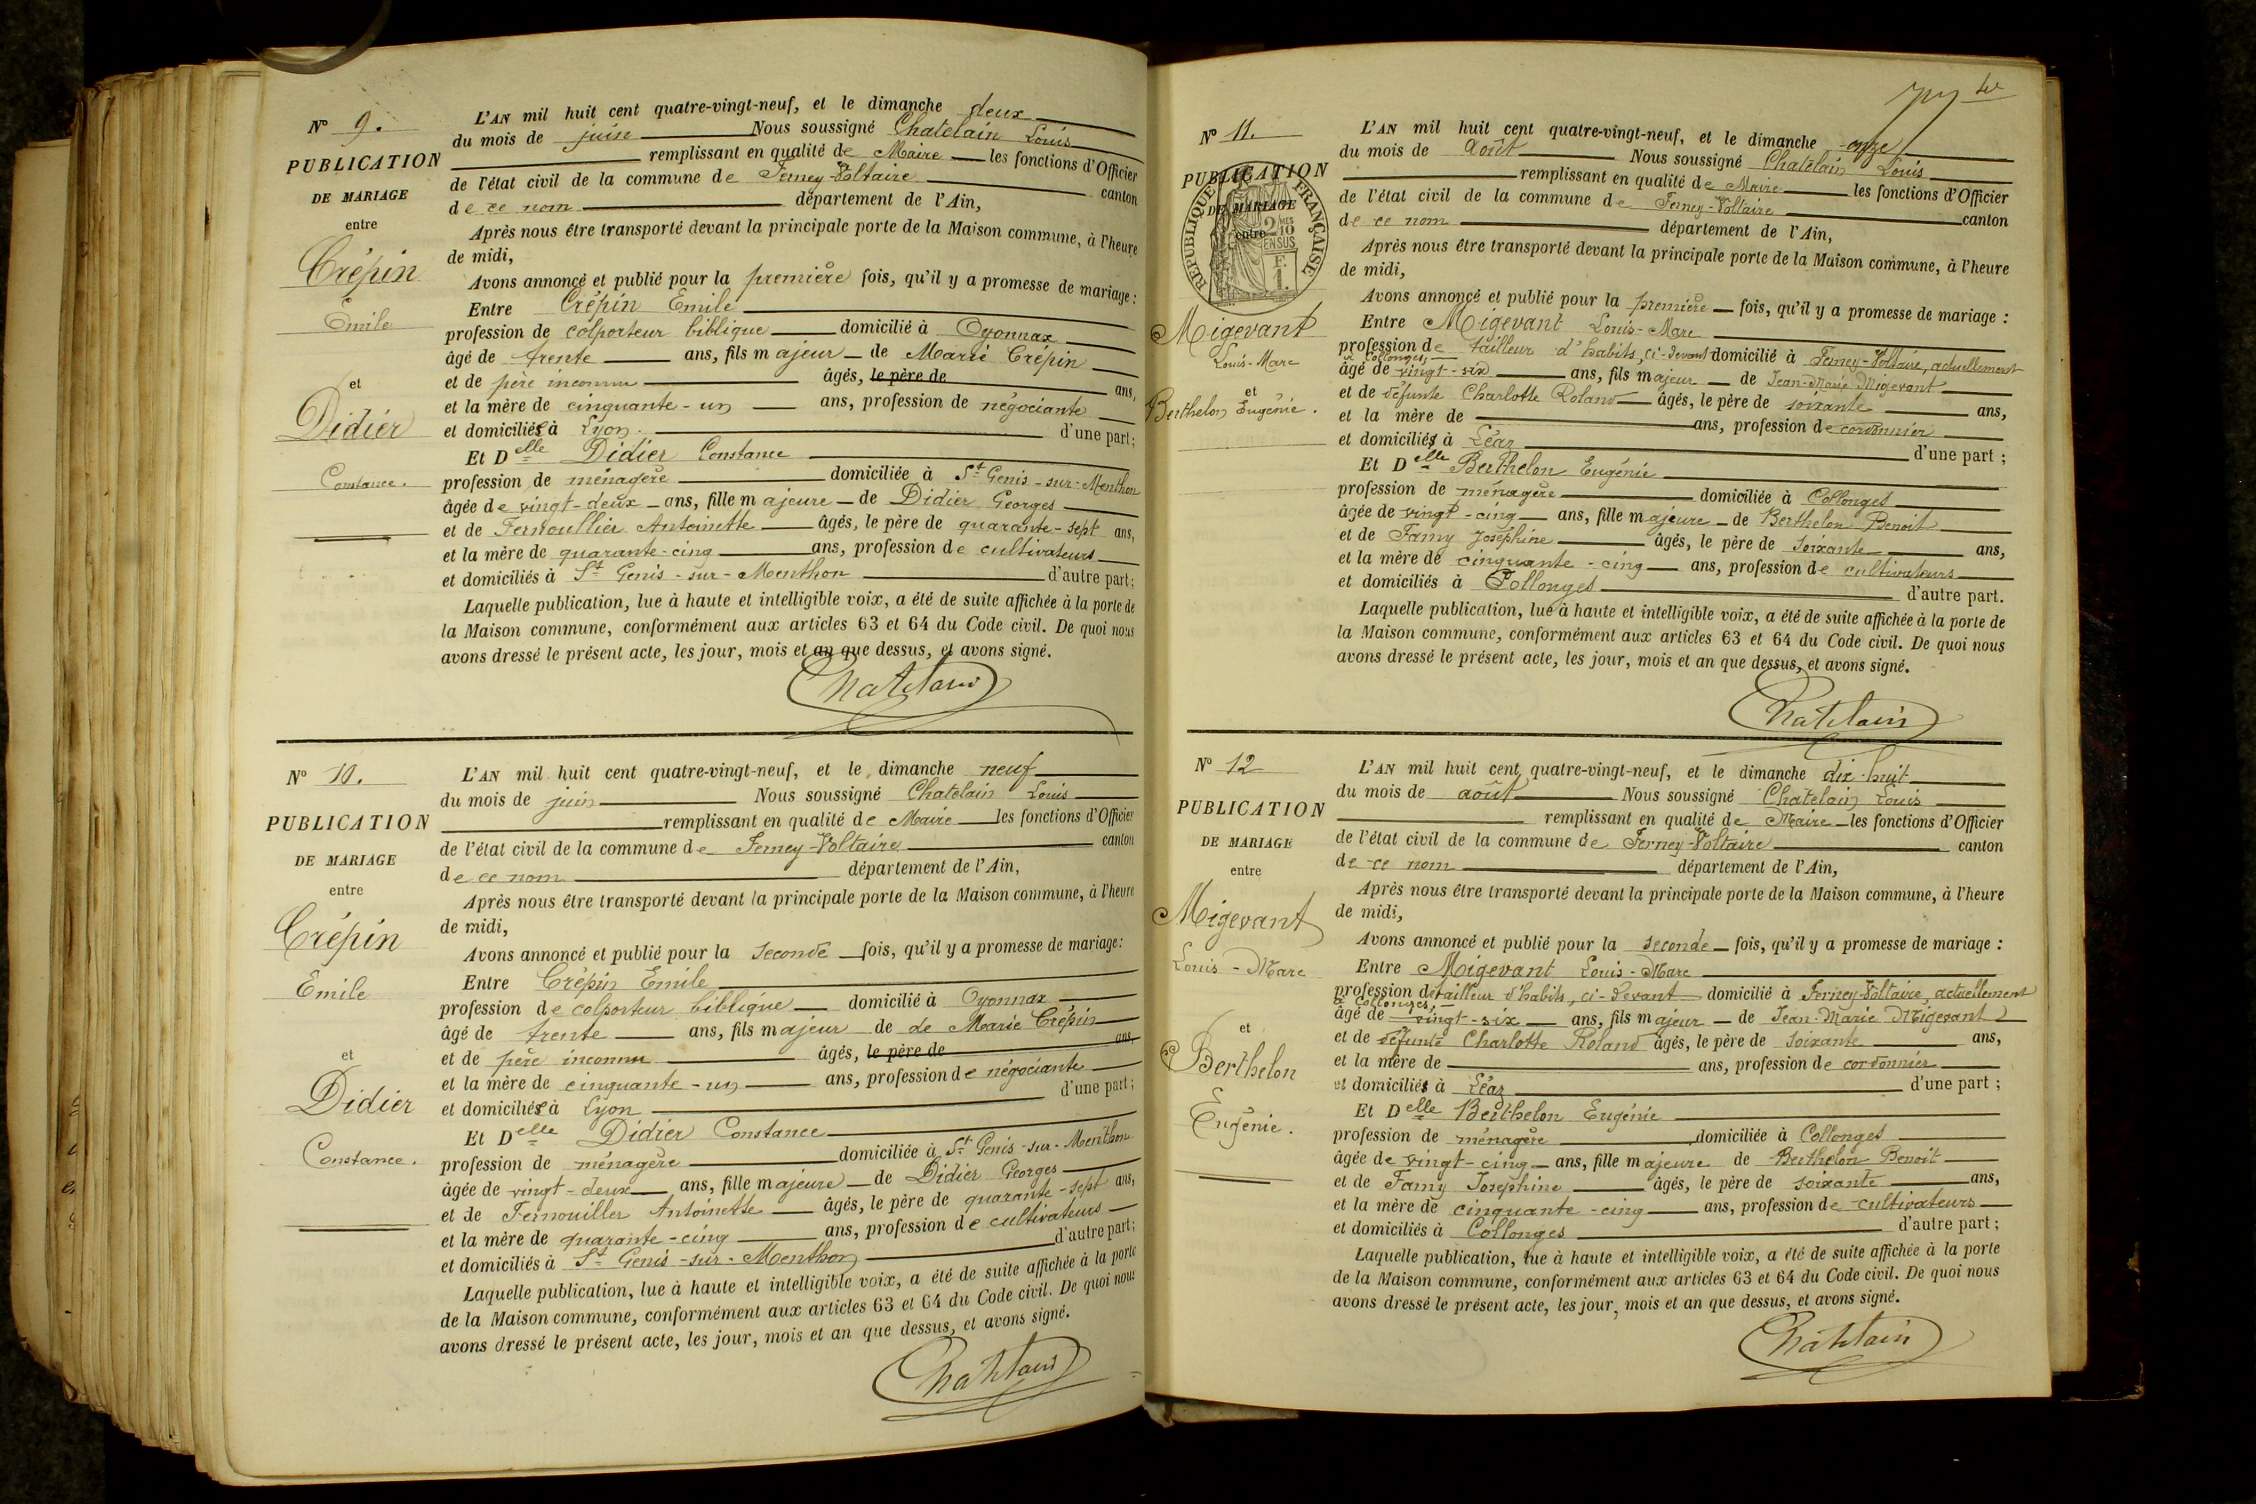 N° 9.
PUBLICATION
DE MARIAGE
entre
Crépin
Emile
et
Didier
Constance.
L'AN mil huit cent quatre-vingt-neuf, et le dimanche deux
du mois de juin Nous soussigné Chatelain Louis
remplissant en qualité de Maire les fonctions d'Officier
de l'état civil de la commune de Ferney-Voltaire canton
de ce nom département de l'Ain,
Après nous être transporté devant la principale porte de la Maison commune, à l'heure
de midi,
Avons annoncé et publié pour la première fois, qu'il y a promesse de mariage :
Entre Crépin Emile
profession de colporteur biblique domicilié à Oyonnax
âgé de trente ans, fils majeur de Marie Crépin
et de père inconnu âgés, le père de ans,
et la mère de cinquante-un ans, profession de négociante
et domiciliée à Lyon. d'une part ;
Et Delle Didier Constance
profession de ménagère domiciliée à St Genis-sur-Menthon
âgée de vingt-deux ans, fille majeure de Didier Georges
et de Fernoullier Antoinette âgés, le père de quarante-sept ans,
et la mère de quarante-cinq ans, profession de cultivateurs
et domiciliés à St Genis-sur-Menthon d'autre part ;
Laquelle publication, lue à haute et intelligible voix, a été de suite affichée à la porte de
la Maison commune, conformément aux articles 63 et 64 du Code civil. De quoi nous
avons dressé le présent acte, les jour, mois et an que dessus, et avons signé.
Chatelain
N° 10.
PUBLICATION
DE MARIAGE
entre
Crépin
Emile
et
Didier
Constance.
L'AN mil huit cent quatre-vingt-neuf, et le dimanche neuf
du mois de juin Nous soussigné Chatelain Louis
remplissant en qualité de Maire les fonctions d'Officier
de l'état civil de la commune de Ferney-Voltaire canton
de ce nom département de l'Ain,
Après nous être transporté devant la principale porte de la Maison commune, à l'heure
de midi,
Avons annoncé et publié pour la seconde fois, qu'il y a promesse de mariage :
Entre Crépin Emile
profession de colporteur biblique domicilié à Oyonnax
âgé de trente ans, fils majeur de de Marie Crépin
et de père inconnu âgés, le père de ans,
et la mère de cinquante-un ans, profession de négociante
et domiciliée à Lyon d'une part ;
Et Delle Didier Constance
profession de ménagère domiciliée à St Genis-sur-Menthon
âgée de vingt-deux ans, fille majeure de Didier Georges
et de Fernouiller Antoinette âgés, le père de quarante-sept ans,
et la mère de quarante-cinq ans, profession de cultivateurs
et domiciliés à St Genis-sur-Menthon d'autre part ;
Laquelle publication, lue à haute et intelligible voix, a été de suite affichée à la porte
de la Maison commune, conformément aux articles 63 et 64 du Code civil. De quoi nous
avons dressé le présent acte, les jour, mois et an que dessus, et avons signé.
Chatelain
N° 11.
PUBLICATION
DE MARIAGE
entre
RÉPUBLIQUE FRANÇAISE
2/10 MES
EN SUS
F.
1.
Migevant
Louis-Marc
et
Berthelon Eugénie.
L'AN mil huit cent quatre-vingt-neuf, et le dimanche onze
du mois de Août Nous soussigné Chatelain Louis
remplissant en qualité de Maire les fonctions d'Officier
de l'état civil de la commune de Ferney-Voltaire canton
de ce nom département de l'Ain,
Après nous être transporté devant la principale porte de la Maison commune, à l'heure
de midi,
Avons annoncé et publié pour la première fois, qu'il y a promesse de mariage :
Entre Migevant Louis-Marc
profession de tailleur d'habits, ci-devant domicilié à Ferney-Voltaire, actuellement
à Collonges,
âgé de vingt-six ans, fils majeur de Jean-Marie Migevant
et de défunte Charlotte Roland âgés, le père de soixante ans,
et la mère de ans, profession de cordonnier
et domicilié à Léaz d'une part ;
Et Delle Berthelon Eugénie
profession de ménagère domiciliée à Collonges
âgée de vingt-cinq ans, fille majeure de Berthelon Benoit
et de Famy Joséphine âgés, le père de soixante ans,
et la mère de cinquante-cinq ans, profession de cultivateurs
et domiciliés à Collonges d'autre part.
Laquelle publication, lue à haute et intelligible voix, a été de suite affichée à la porte de
la Maison commune, conformément aux articles 63 et 64 du Code civil. De quoi nous
avons dressé le présent acte, les jour, mois et an que dessus, et avons signé.
Chatelain
N° 12
PUBLICATION
DE MARIAGE
entre
Migevant
Louis-Marc
et
Berthelon
Eugénie.
L'AN mil huit cent quatre-vingt-neuf, et le dimanche dix-huit
du mois de août Nous soussigné Chatelain Louis
remplissant en qualité de Maire les fonctions d'Officier
de l'état civil de la commune de Ferney-Voltaire canton
de ce nom département de l'Ain,
Après nous être transporté devant la principale porte de la Maison commune, à l'heure
de midi,
Avons annoncé et publié pour la seconde fois, qu'il y a promesse de mariage :
Entre Migevant Louis-Marc
profession de tailleur d'habits, ci-devant domicilié à Ferney-Voltaire, actuellement
à Collonges,
âgé de vingt-six ans, fils majeur de Jean-Marie Migevant
et de défunte Charlotte Roland âgés, le père de soixante ans,
et la mère de ans, profession de cordonnier
et domicilié à Léaz d'une part ;
Et Delle Berthelon Eugénie
profession de ménagère domiciliée à Collonges
âgée de vingt-cinq ans, fille majeure de Berthelon Benoit
et de Famy Josephine âgés, le père de soixante ans,
et la mère de cinquante-cinq ans, profession de cultivateurs
et domiciliés à Collonges d'autre part ;
Laquelle publication, lue à haute et intelligible voix, a été de suite affichée à la porte
de la Maison commune, conformément aux articles 63 et 64 du Code civil. De quoi nous
avons dressé le présent acte, les jour, mois et an que dessus, et avons signé.
Chatelain